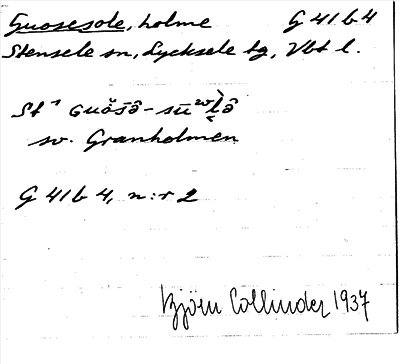 Guosesole, holme G 41 b 4
Stensele sn, Lycksele tg, Vbt l.
sv. Granholmen
G 41 b 4, n:r 2
Björn Collinder 1937